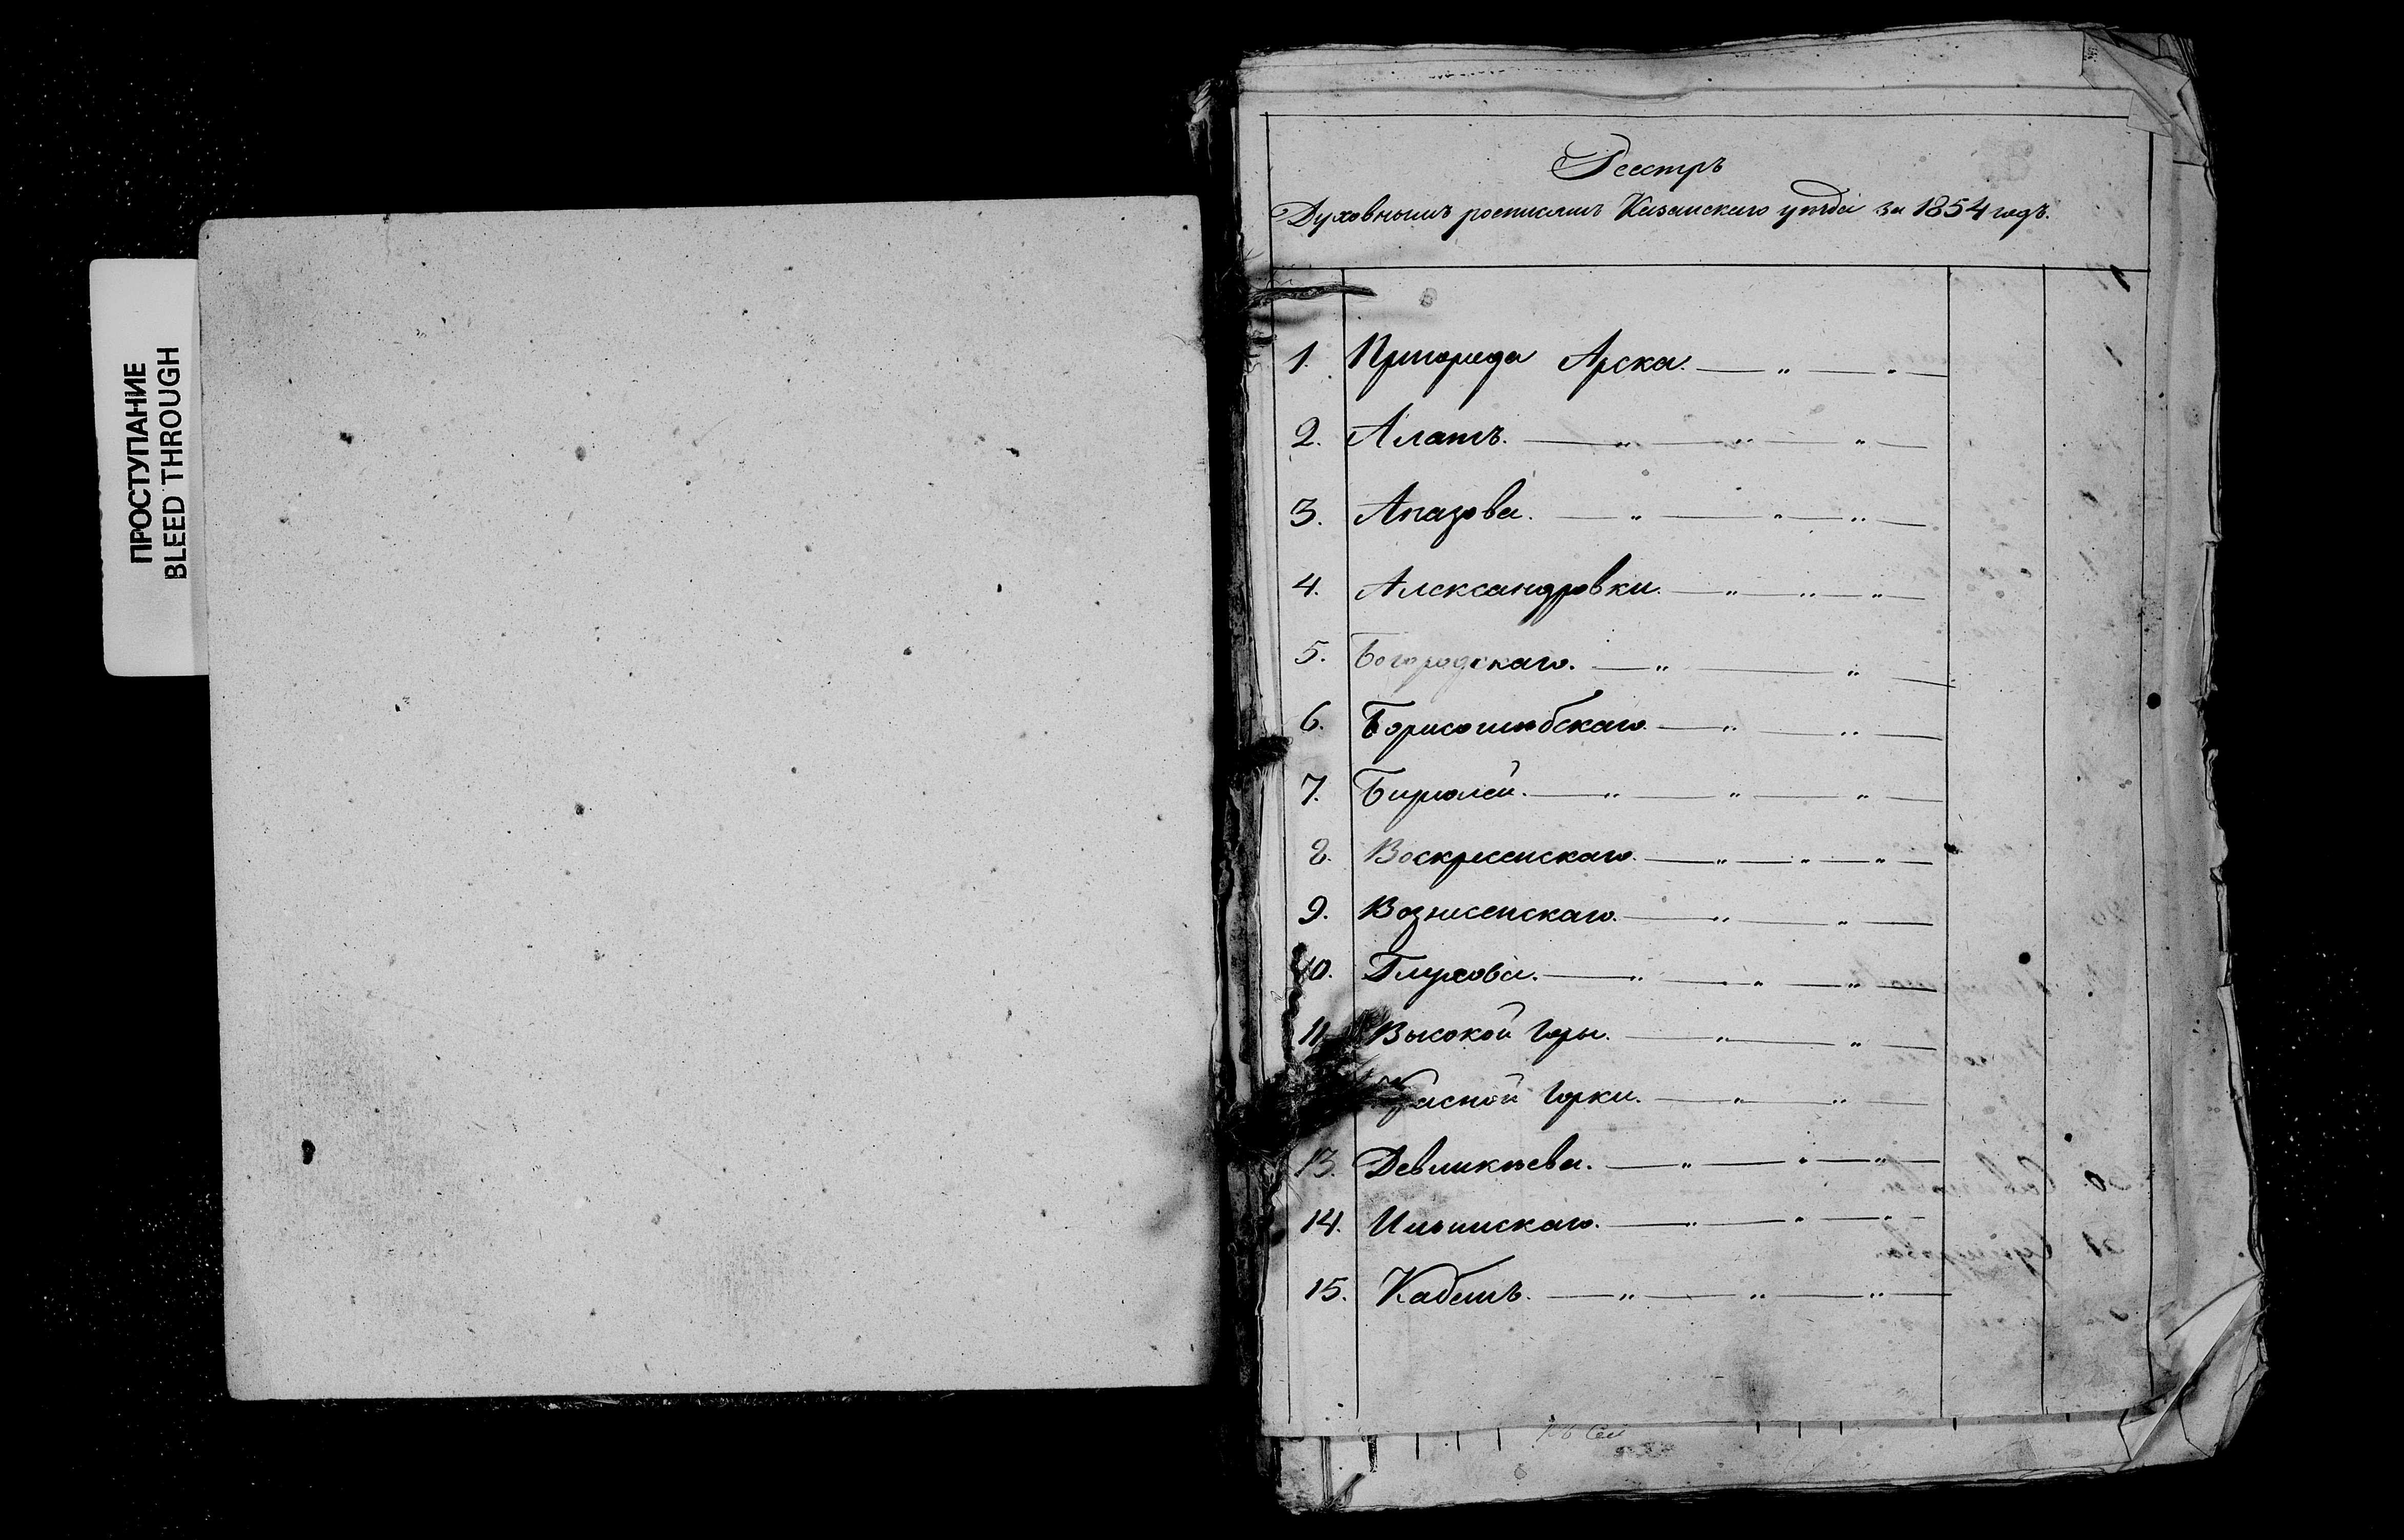 ПРОСТУПАНИЕ
BLEED THROUGH
Реестръ
Духовнымъ росписямъ Казанскаго уѣзда за 1854 годъ.
1. Пригорода Арска. — „ — „ —
2. Алатъ. — „ — „ — „ —
3. Апазова. — „ — „ — „ —
4. Александровки. — „ — „ — „ —
5. Богородскаго. — „ — „ —
6. Борисоглѣбскаго. — „ — „ —
7. Бирюлей. — „ — „ — „ —
8. Воскресенскаго. — „ — „ — „ —
9. Вознесенскаго. — „ — „ —
10. Глухова. — „ — „ — „ —
11. Высокой Горы. — „ — „ —
Красной Горки. — „ — „ —
13. Девликѣева. — „ — „ — „ —
14. Ильинскаго. — „ — „ — „ —
15. Кабанъ. — „ — „ — „ —